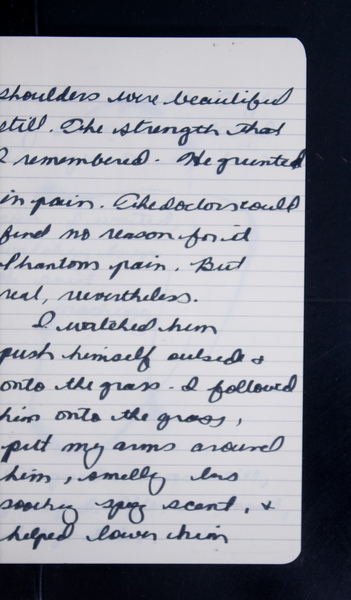 shoulders were beautiful
still. The strength that
I remembered. He grunted
in pain. The doctors could
find no reason for it
Phantom pain. But
real, nevertheless.
I watched him
push himself outside &
onto the grass. I followed
him onto the grass,
put my arms around
him, smelly his
spicy scent, &
helped lower him